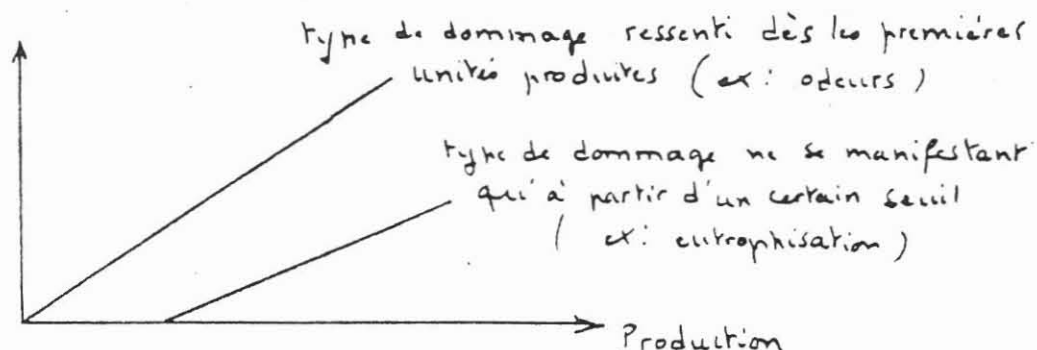 type de dommage ressenti dès les premières
unités produites (ex: odeurs)
type de dommage ne se manifestant
qu'à partir d'un certain seuil
(ex: eutrophisation)
Production